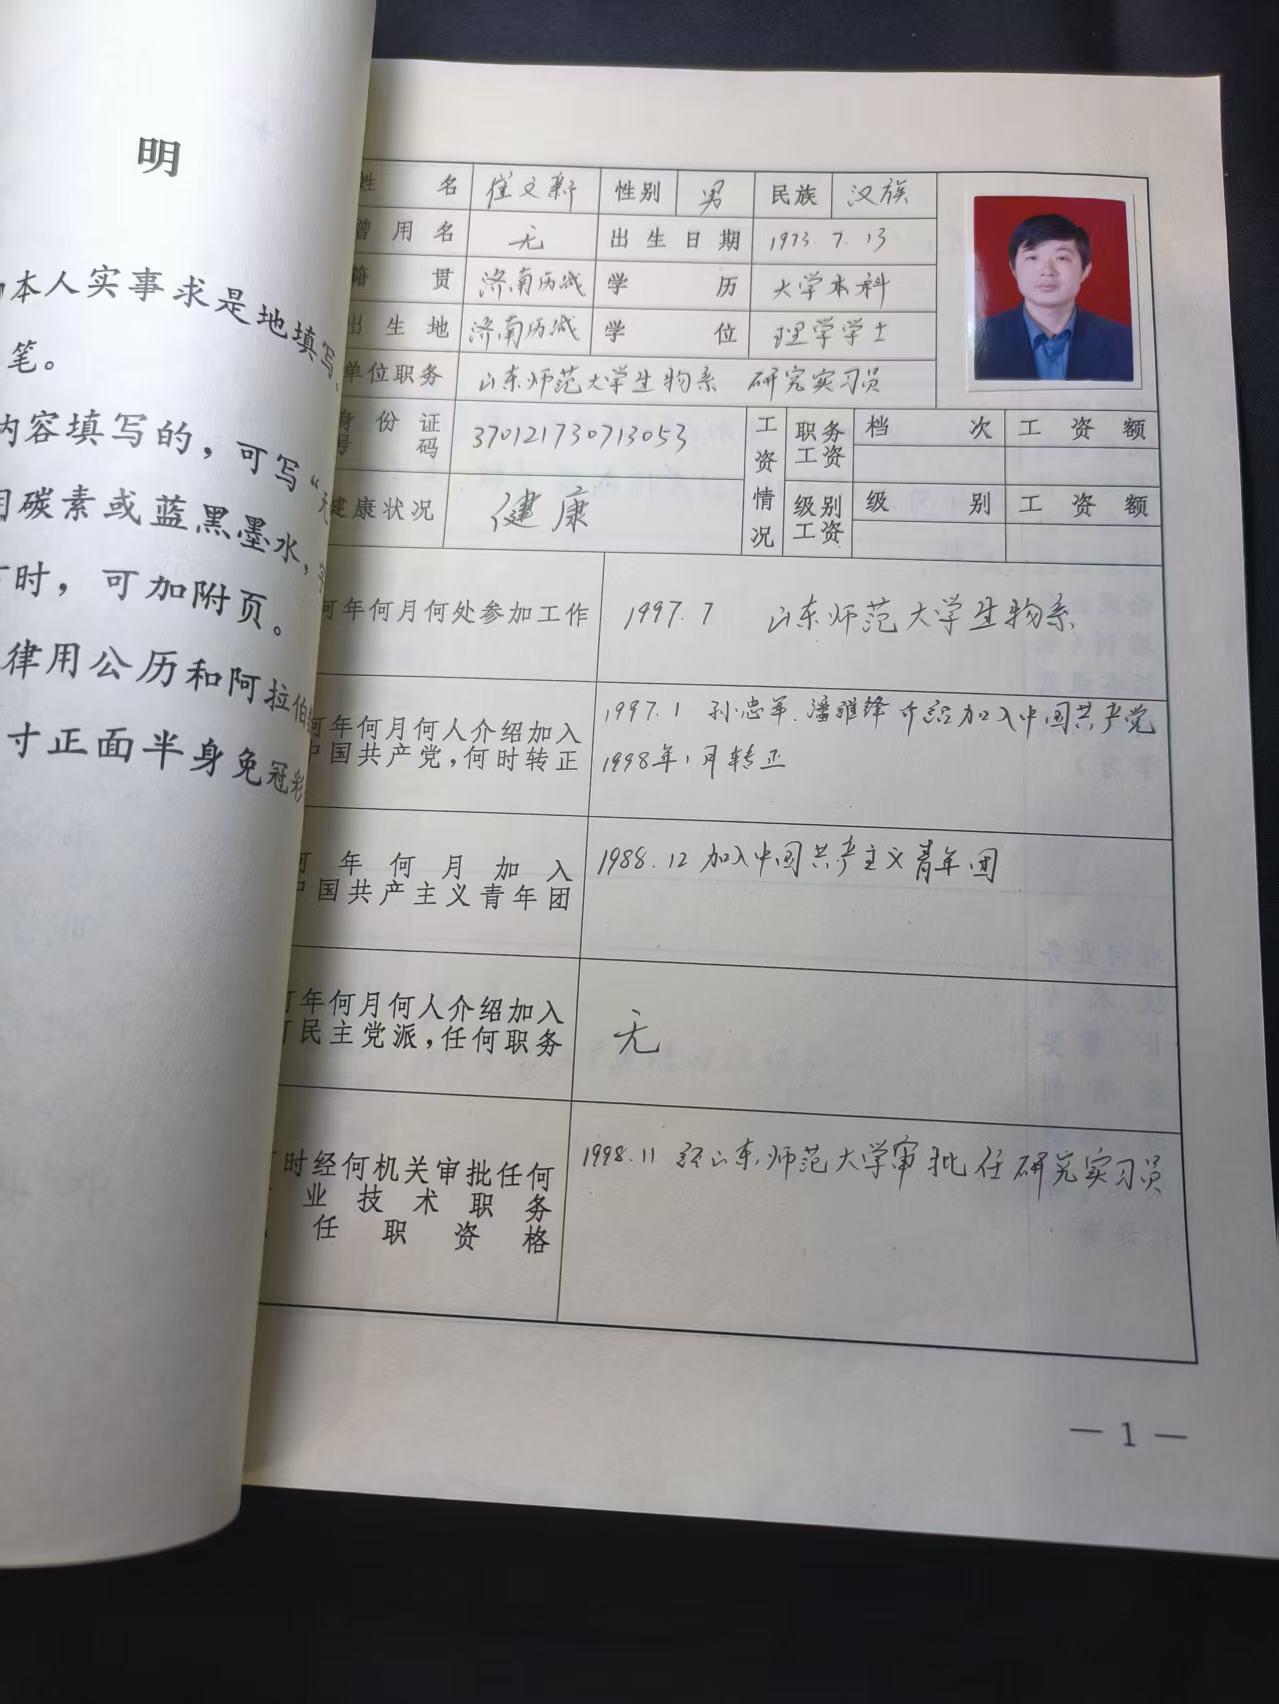 明
本人实事求是地填写
笔。
内容填写的，可写“无
用碳素或蓝黑墨水，字
时，可加附页。
律用公历和阿拉伯数
寸正面半身免冠彩
姓名 崔文新 性别 男 民族 汉族
曾用名 无 出生日期 1973.7.13
籍贯 济南历城 学历 大学本科
出生地 济南历城 学位 理学学士
单位职务 山东师范大学生物系 研究实习员
身份证号码 370121730713053
工资情况 职务工资 档次 工资额
健康状况 健康 级别工资 级别 工资额
何年何月何处参加工作 1997.7 山东师范大学生物系
何年何月何人介绍加入 1997.1 孙忠军.潘雅锋介绍加入中国共产党
中国共产党，何时转正 1998年1月转正
何年何月加入 1988.12加入中国共产主义青年团
中国共产主义青年团
何年何月何人介绍加入
何民主党派，任何职务 无
何时经何机关审批任何 1998.11 经山东师范大学审批任研究实习员
业技术职务
任职资格
— 1 —